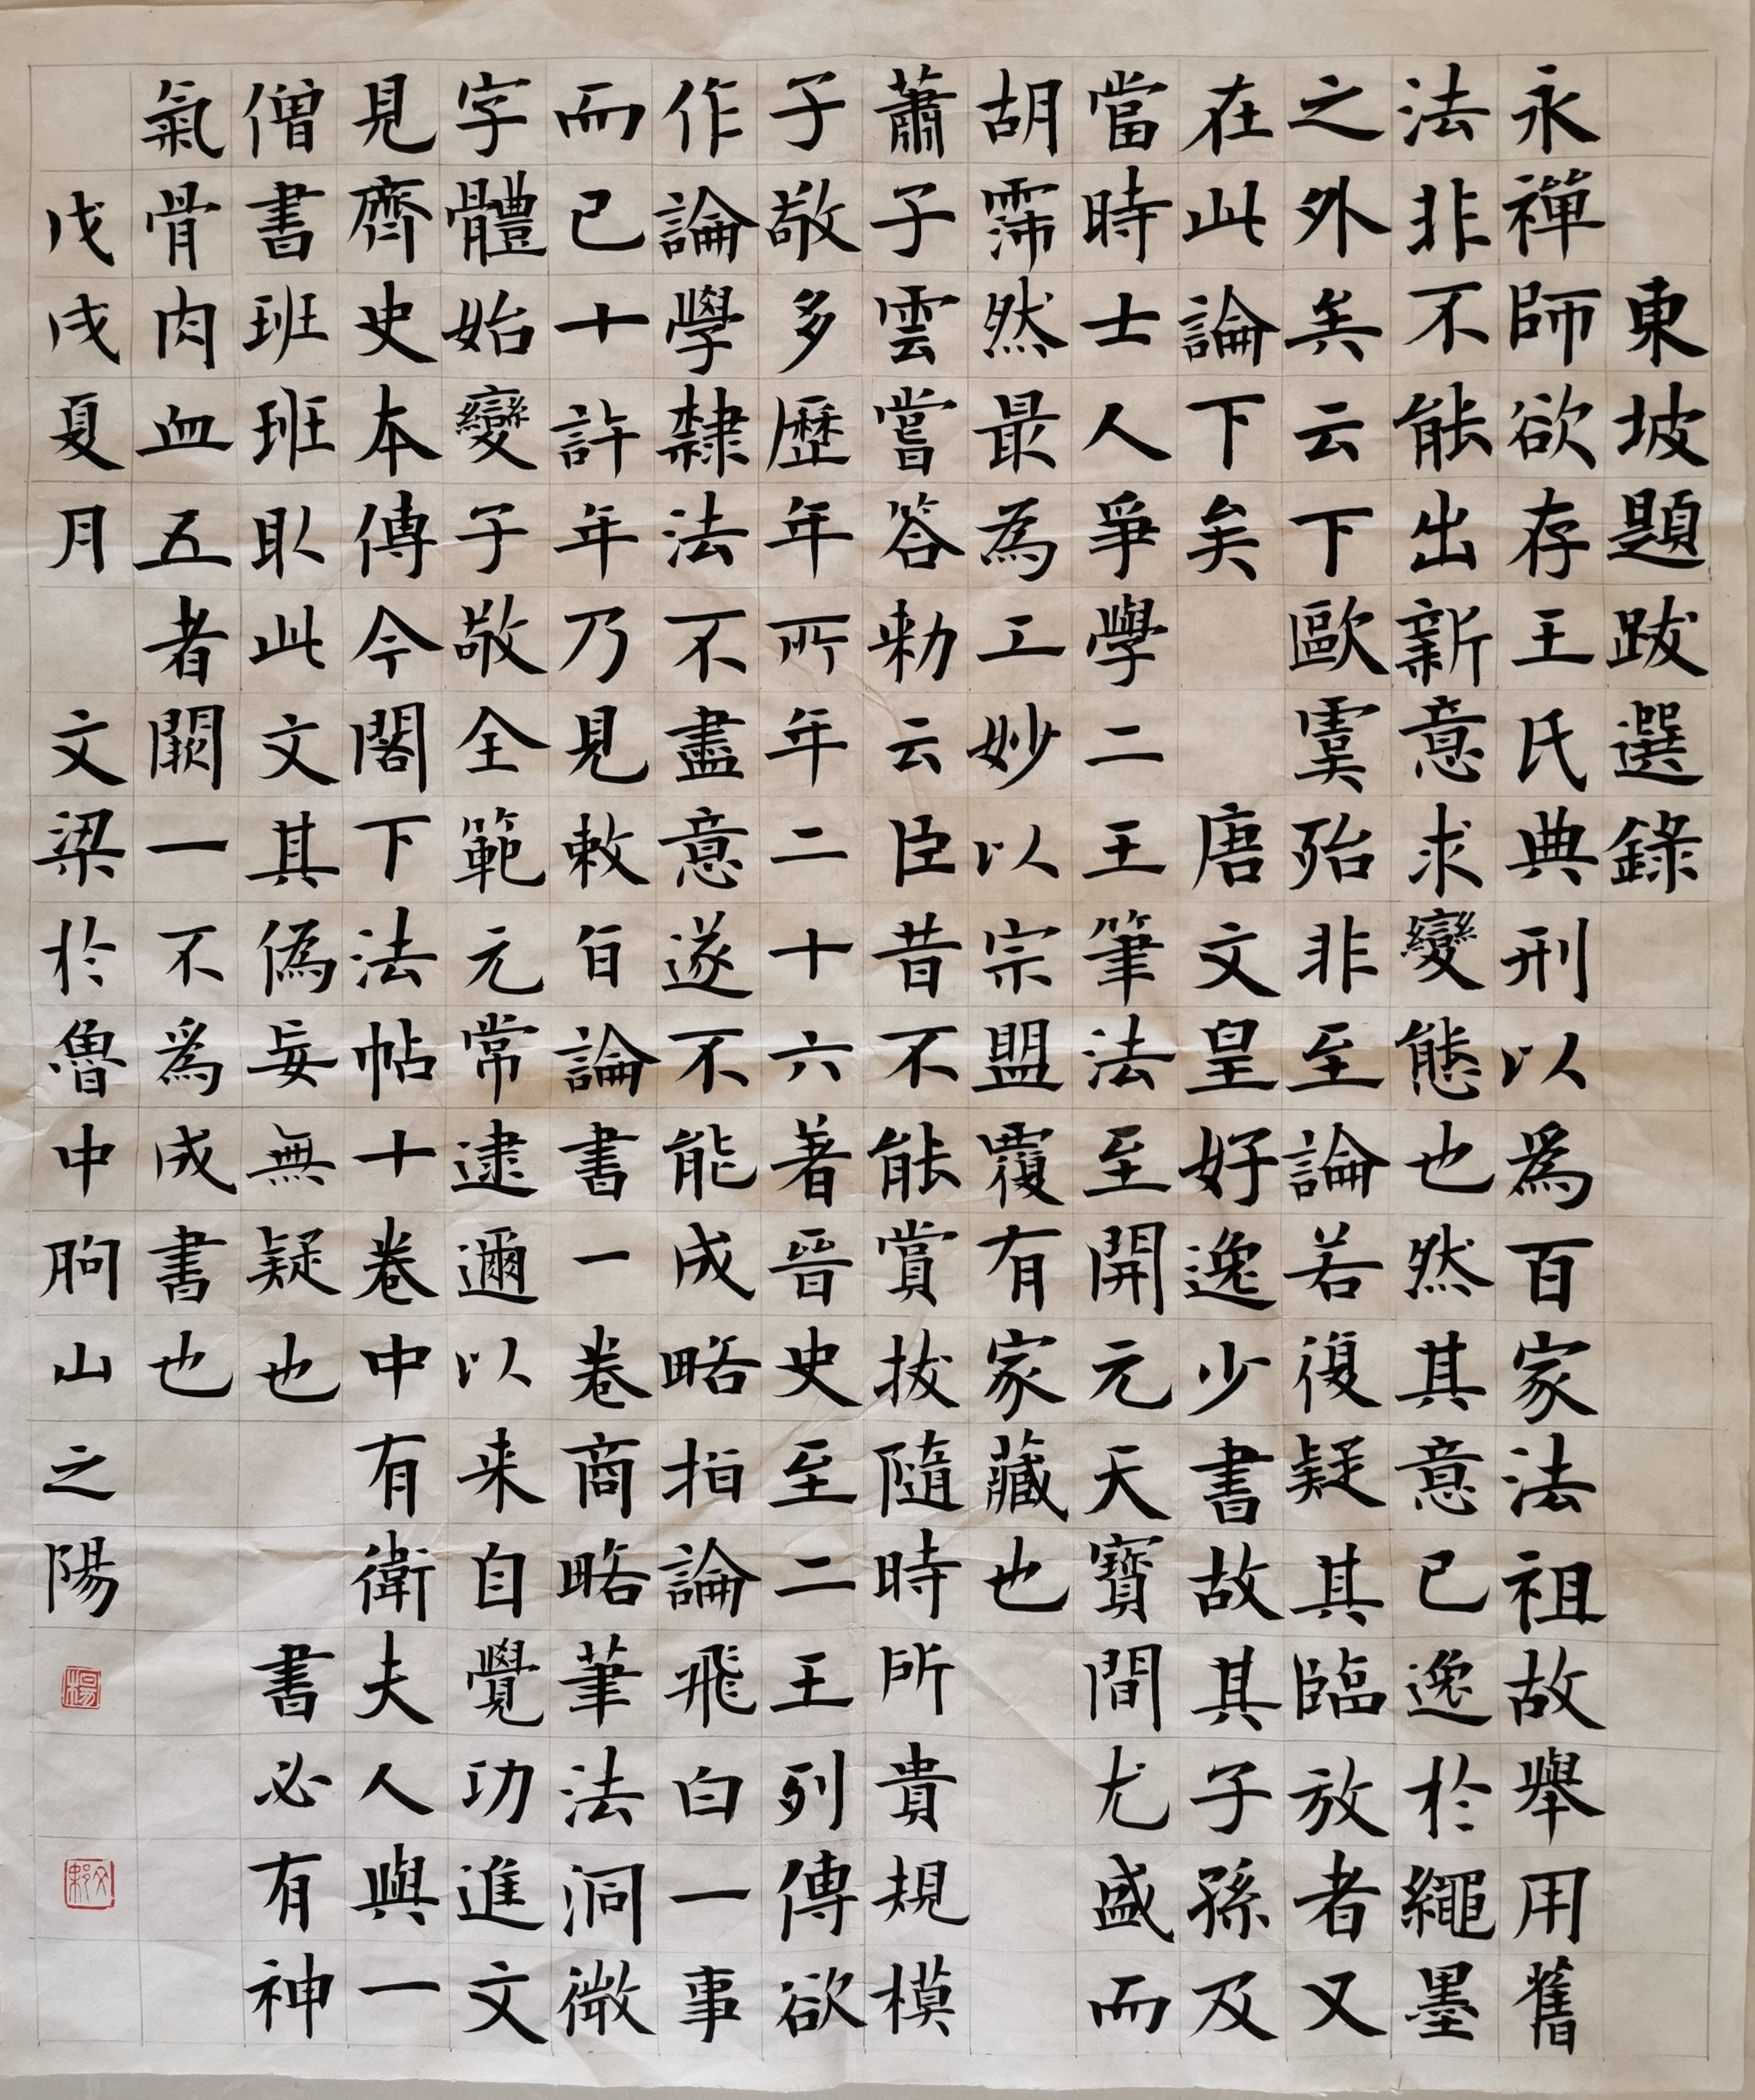 東坡題跋選錄
永禪師欲存王氏典刑以爲百家法祖故舉用舊
法非不能出新意求變態也然其意已逸於繩墨
之外矣云下歐虞殆非至論若復疑其臨放者又
在此論下矣 唐文皇好逸少書故其子孫及
當時士人爭學二王筆法至開元天寶間尤盛而
胡霈然最為工妙以宗盟覆有家藏也
蕭子雲嘗答勑云臣昔不能賞拔隨時所貴規模
子敬多歷年所年二十六著晉史至二王列傳欲
作論學隸法不盡意遂不能成略指論飛白一事
而已十許年乃見敕旨論書一卷商略筆法洞微
字體始變子敬全範元常逮邇以来自覺功進文
見齊史本傳今閣下法帖十卷中有衛夫人與一
僧書班班取此文其偽妄無疑也 書必有神
氣骨肉血五者闕一不爲成書也
戊戌夏月 文梁於魯中朐山之陽
楊